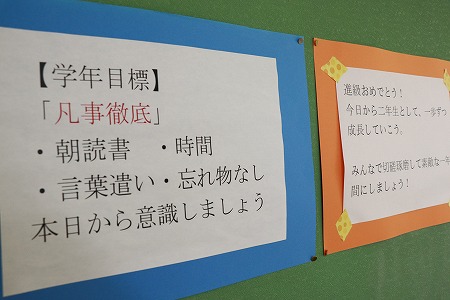 【学年目標】
「凡事徹底」
・朝読書　・時間
・言葉遣い・忘れ物なし
本日から意識しましょう
進級おめでとう！
今日から二年生として、一歩ずつ
成長していこう。
みんなで切磋琢磨して素敵な一年
間にしましょう！